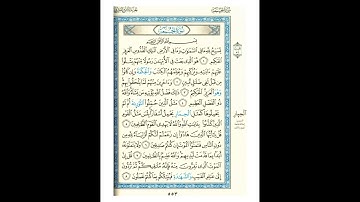 سُورَةُ الجُمُعَةِ
بِسْمِ اللَّهِ الرَّحْمَٰنِ الرَّحِيمِ
يُسَبِّحُ لِلَّهِ مَا فِي السَّمَاوَاتِ وَمَا فِي الْأَرْضِ الْمَلِكِ الْقُدُّوسِ الْعَزِيزِ
الْحَكِيمِ ١ هُوَ الَّذِي بَعَثَ فِي الْأُمِّيِّينَ رَسُولًا مِنْهُمْ يَتْلُو عَلَيْهِمْ
آيَاتِهِ وَيُزَكِّيهِمْ وَيُعَلِّمُهُمُ الْكِتَابَ وَالْحِكْمَةَ وَإِنْ كَانُوا مِنْ
قَبْلُ لَفِي ضَلَالٍ مُبِينٍ ٢ وَآخَرِينَ مِنْهُمْ لَمَّا يَلْحَقُوا بِهِمْ
وَهُوَ الْعَزِيزُ الْحَكِيمُ ٣ ذَٰلِكَ فَضْلُ اللَّهِ يُؤْتِيهِ مَنْ يَشَاءُ وَاللَّهُ
ذُو الْفَضْلِ الْعَظِيمِ ٤ مَثَلُ الَّذِينَ حُمِّلُوا التَّوْرَاةَ ثُمَّ لَمْ
يَحْمِلُوهَا كَمَثَلِ الْحِمَارِ يَحْمِلُ أَسْفَارًا بِئْسَ مَثَلُ الْقَوْمِ
الَّذِينَ كَذَّبُوا بِآيَاتِ اللَّهِ وَاللَّهُ لَا يَهْدِي الْقَوْمَ الظَّالِمِينَ ٥
قُلْ يَا أَيُّهَا الَّذِينَ هَادُوا إِنْ زَعَمْتُمْ أَنَّكُمْ أَوْلِيَاءُ لِلَّهِ مِنْ دُونِ
النَّاسِ فَتَمَنَّوُا الْمَوْتَ إِنْ كُنْتُمْ صَادِقِينَ ٦ وَلَا يَتَمَنَّوْنَهُ أَبَدًا
بِمَا قَدَّمَتْ أَيْدِيهِمْ وَاللَّهُ عَلِيمٌ بِالظَّالِمِينَ ٧ قُلْ إِنَّ الْمَوْتَ
الَّذِي تَفِرُّونَ مِنْهُ فَإِنَّهُ مُلَاقِيكُمْ ثُمَّ تُرَدُّونَ إِلَىٰ
عَالِمِ الْغَيْبِ وَالشَّهَادَةِ فَيُنَبِّئُكُمْ بِمَا كُنْتُمْ تَعْمَلُونَ ٨
الحمار
٥٥٣